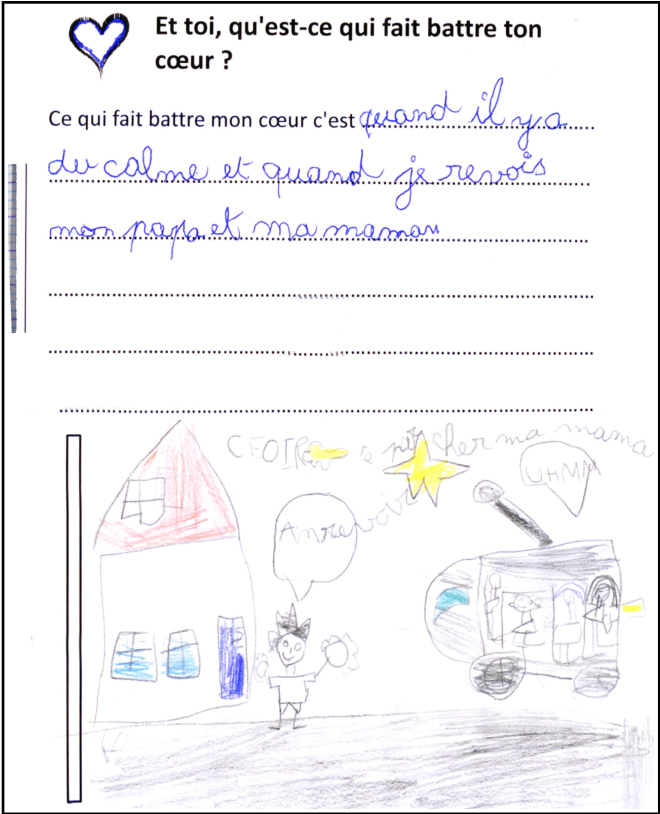 Et toi, qu'est-ce qui fait battre ton
cœur ?
Ce qui fait battre mon cœur c'est quand il y a
du calme et quand je revois
mon papa et ma maman
cher ma mama
UHMM
Anrevoir